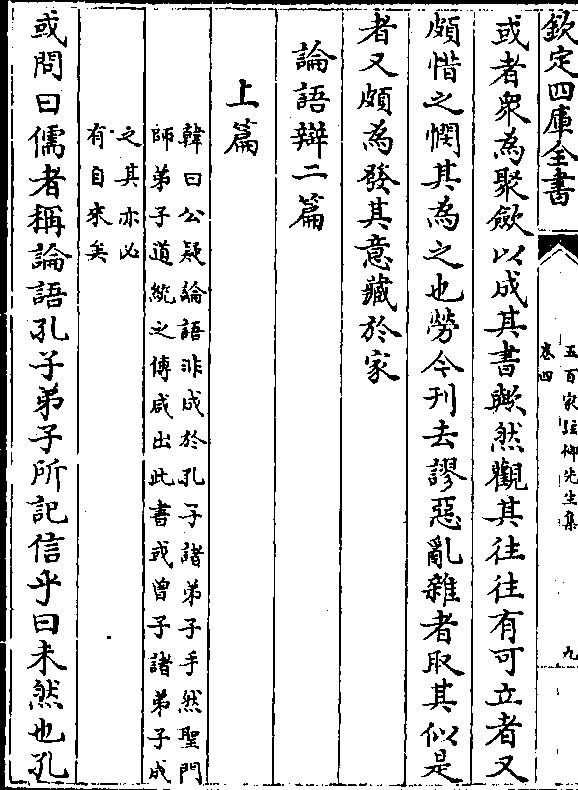 欽定四庫全書
五百家註柳先生集
卷四
九
或者衆為聚歛以成其書歟然觀其往往有可立者又
頗惜之憫其為之也勞今刊去謬惡亂雜者取其似是
者又頗為發其意藏於家
論語辯二篇
上篇
韓曰公疑論語非成於孔子諸弟子手然聖門
師弟子道統之傳咸出此書或曾子諸弟子成
之其亦必
有自來矣
或問曰儒者稱論語孔子弟子所記信乎曰未然也孔